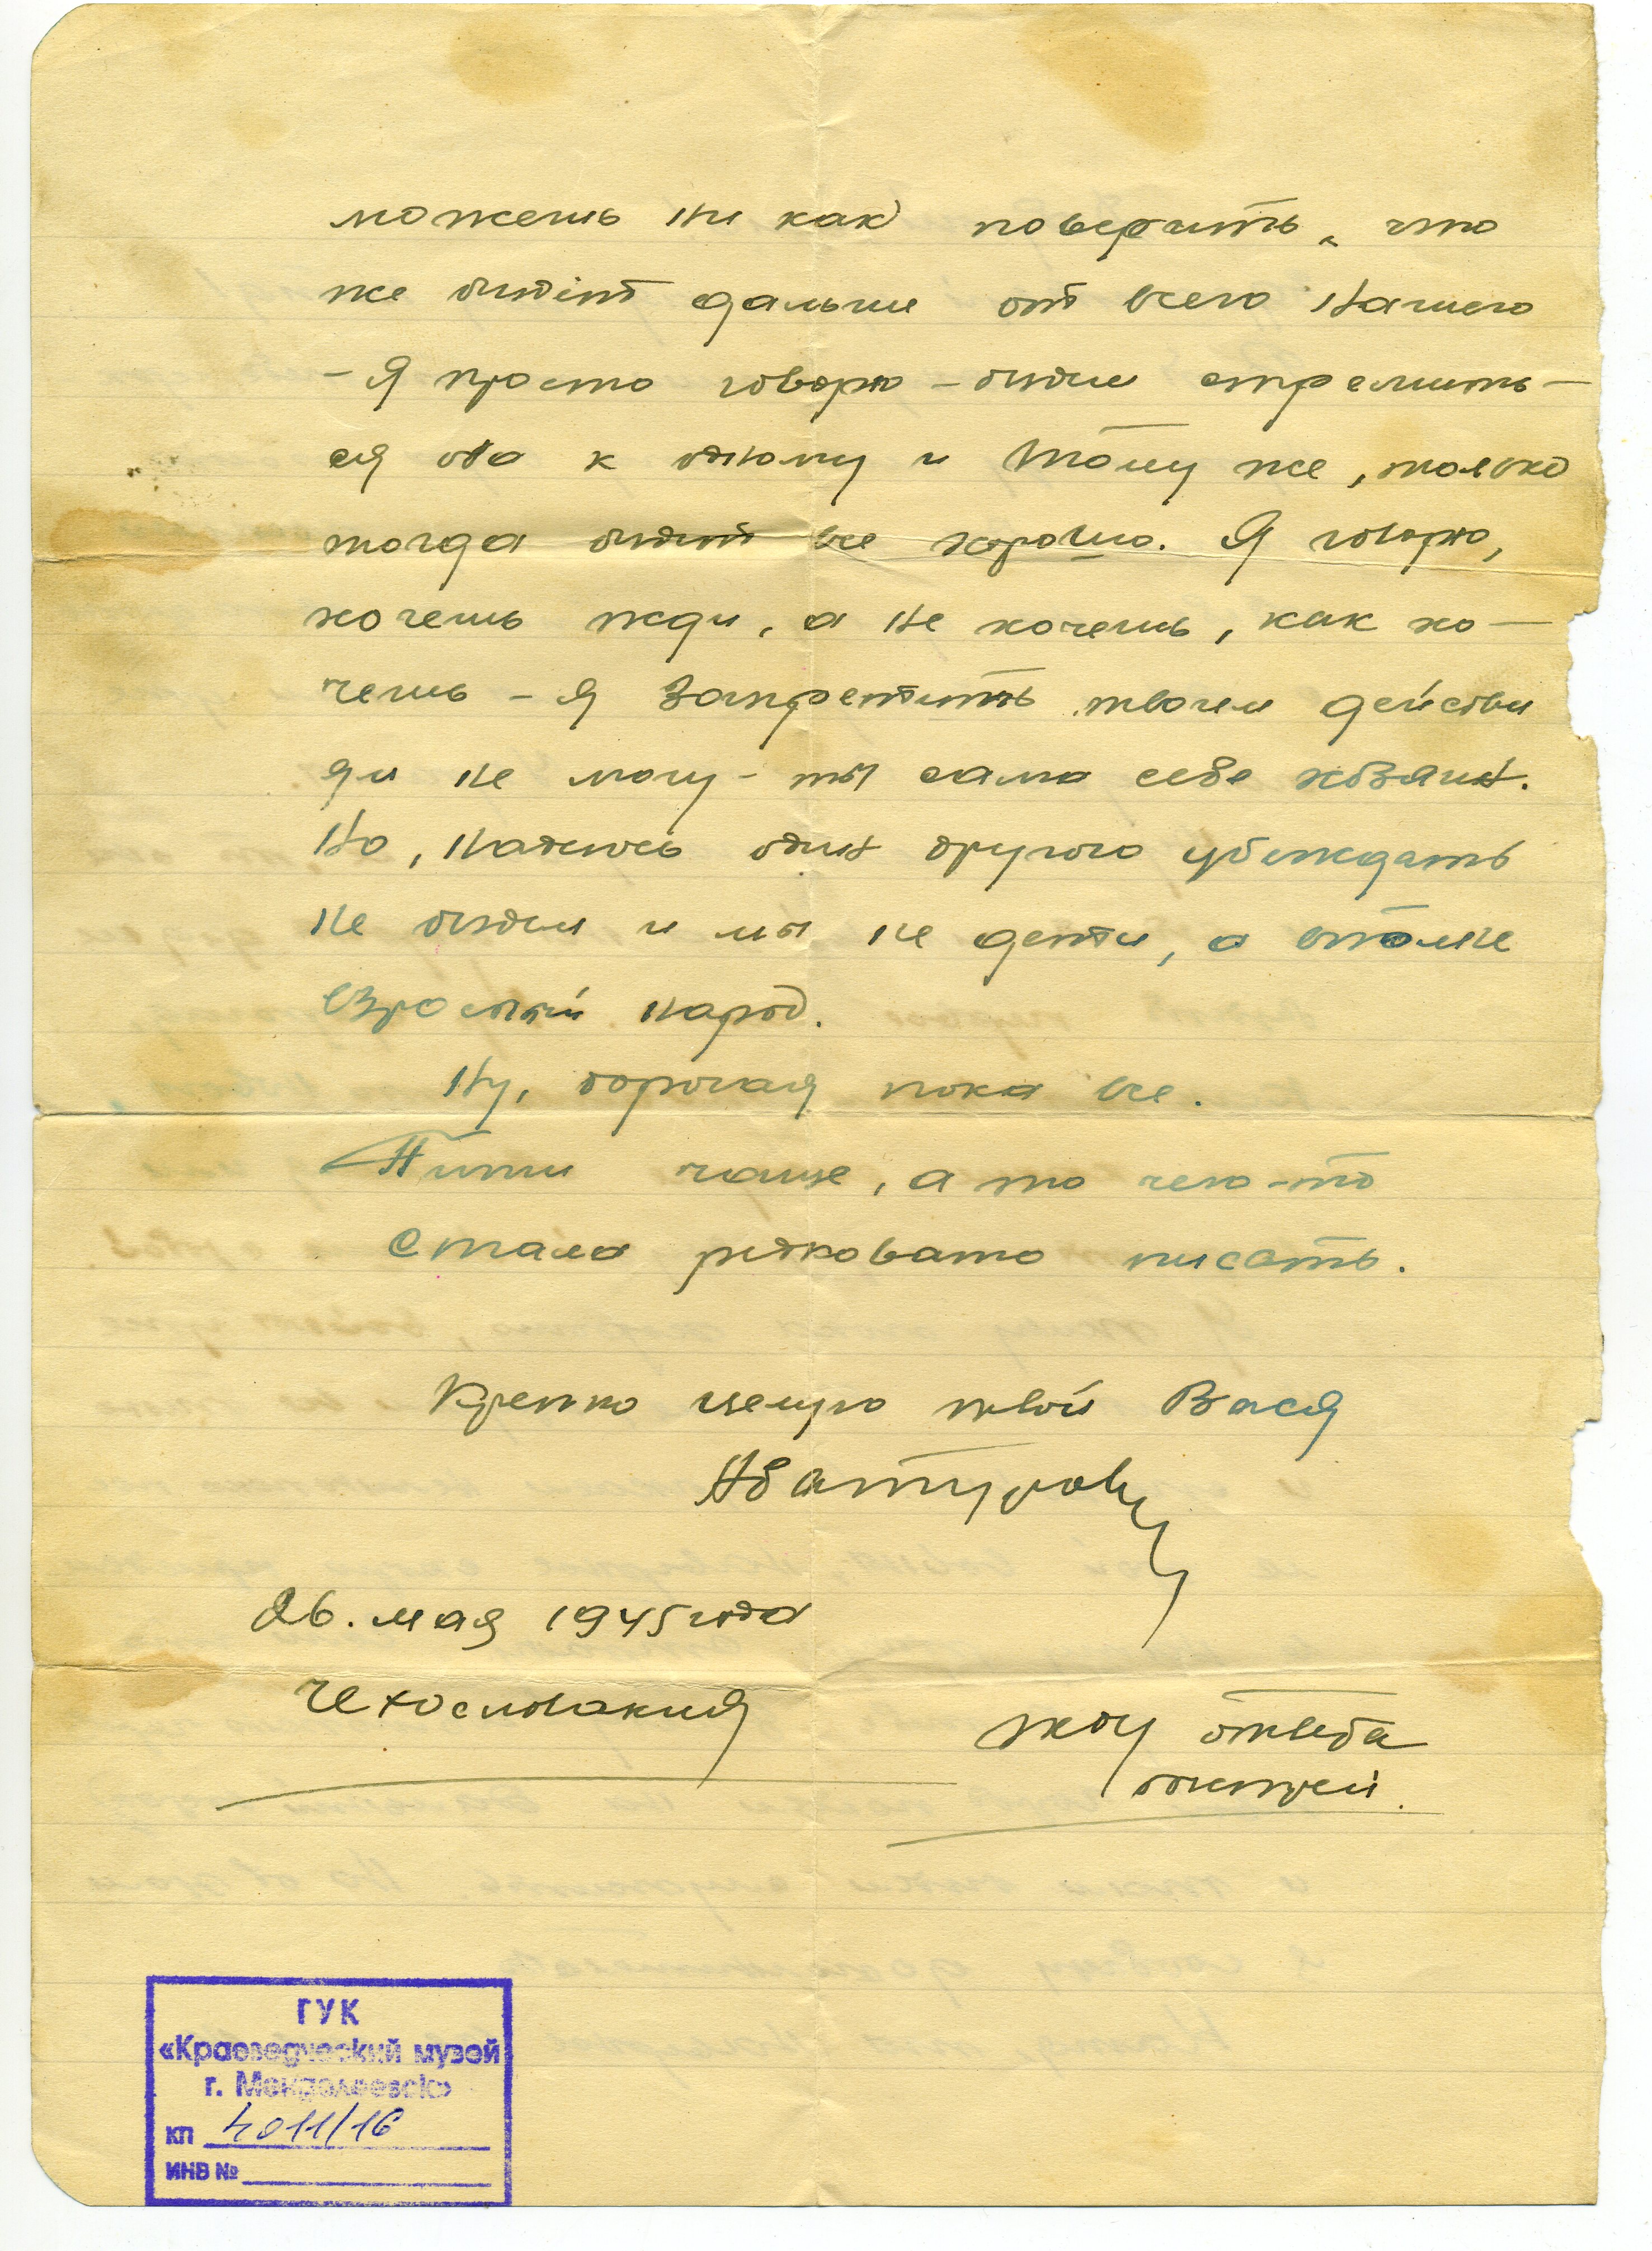 можешь ни как поверить, что
же будет дальше от всего нашего
- Я просто говорю - будем стремить-
ся оба к одному и тому же, только
тогда будет все хорошо. Я говорю,
хочешь жди, а не хочешь, как хо-
чешь - я запретить твоим действи
ям не могу - ты сама себе хозяин.
Но, надеюсь один другого убеждать
не будем и мы не дети, а вполне
взрослый народ.
Ну, дорогая пока все.
Пиши чаще, а то чего-то
стала редковато писать.
Крепко целую твой Вася
Абатуров
26. мая 1945 года
Чехословакия
жду ответа
быстрей.
ГУК
«Краеведческий музей
г. Менделеевск»
КП 4011/16
ИНВ №